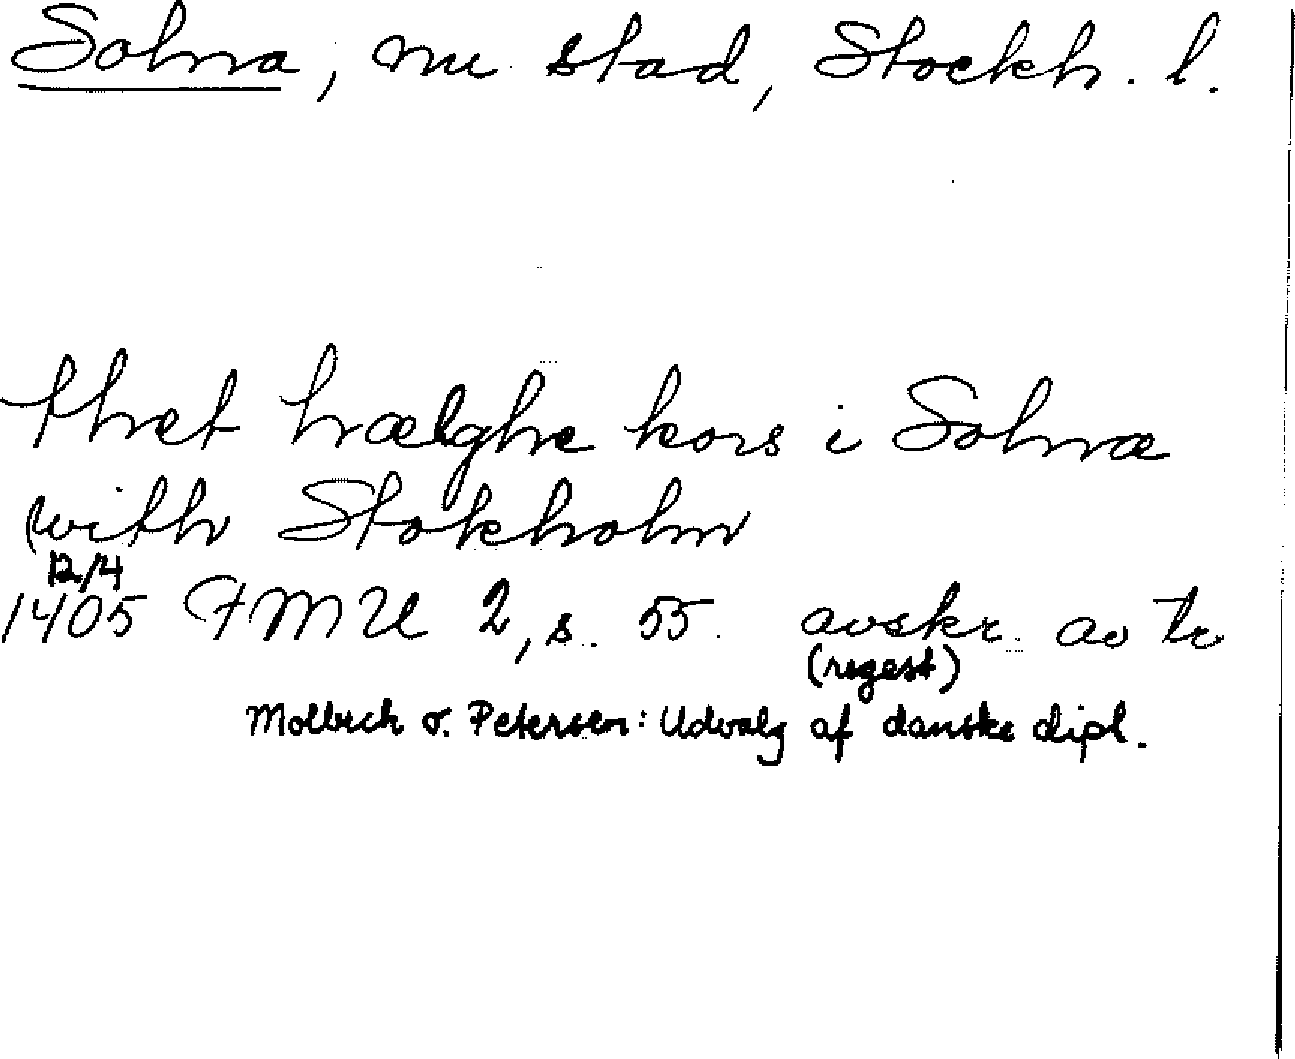 Solna, nu stad, Stockh. l.
thet hælghe kors i Solnæ
with Stokholm
12/4
1405 FMU 2, s. 55. avskr. av tr
(regest)
Molbech o. Petersen: Udvalg af danske dipl.